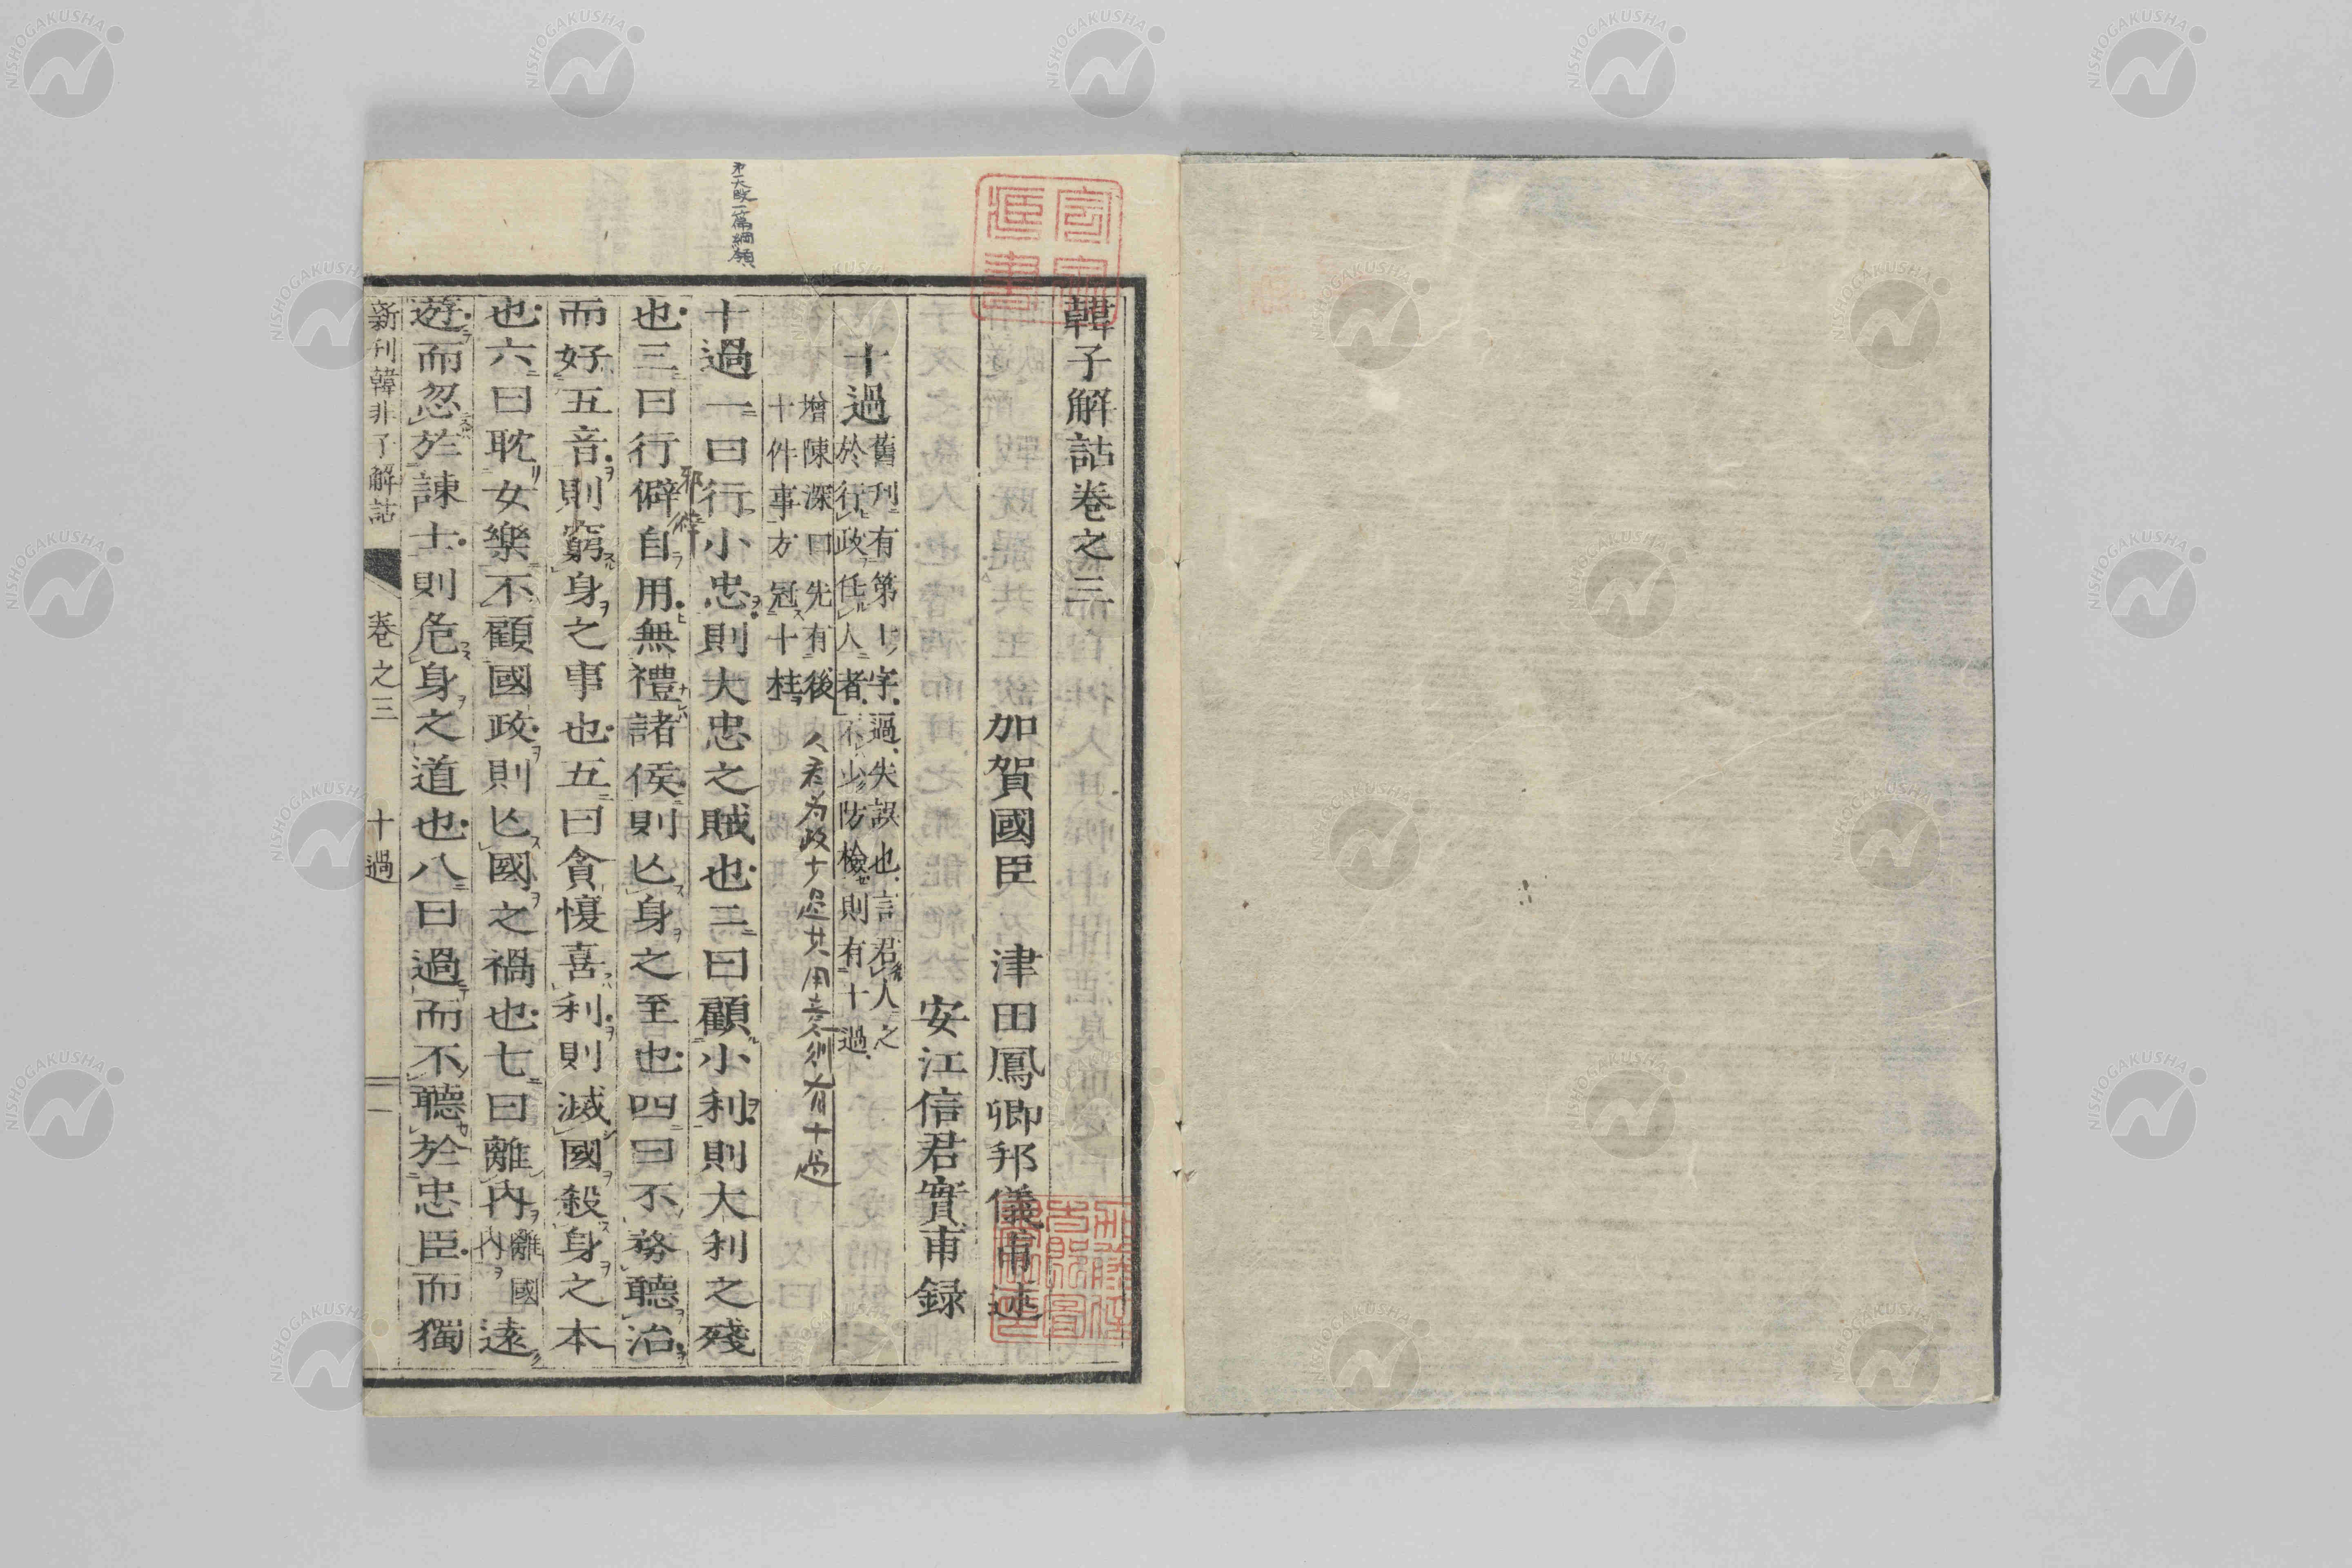 韓子解詁卷之三
加賀國臣 津田鳳卿邦儀甫述
安江信君實甫録
十過
舊刊有第十字過失誤也言君人之
於行政任人者不少防檢則有十過
增陳深曰先有後
十件事方冠十柱
人君為政十過其用意各別有十過
十過一曰行小忠則大忠之賊也二曰顧小利則大利之殘
也三曰行僻自用無禮諸侯則亾身之至也四曰不務聽治
邪僻
而好五音則窮身之事也五曰貪愎喜利則滅國殺身之本
也六曰耽女樂不顧國政則亾國之禍也七曰離內
離國
內
遠
遊而忽於諫士則危身之道也八曰過而不聽於忠臣而獨
新刊韓非子解詁 卷之三 十過 一
NISHOGAKUSHA